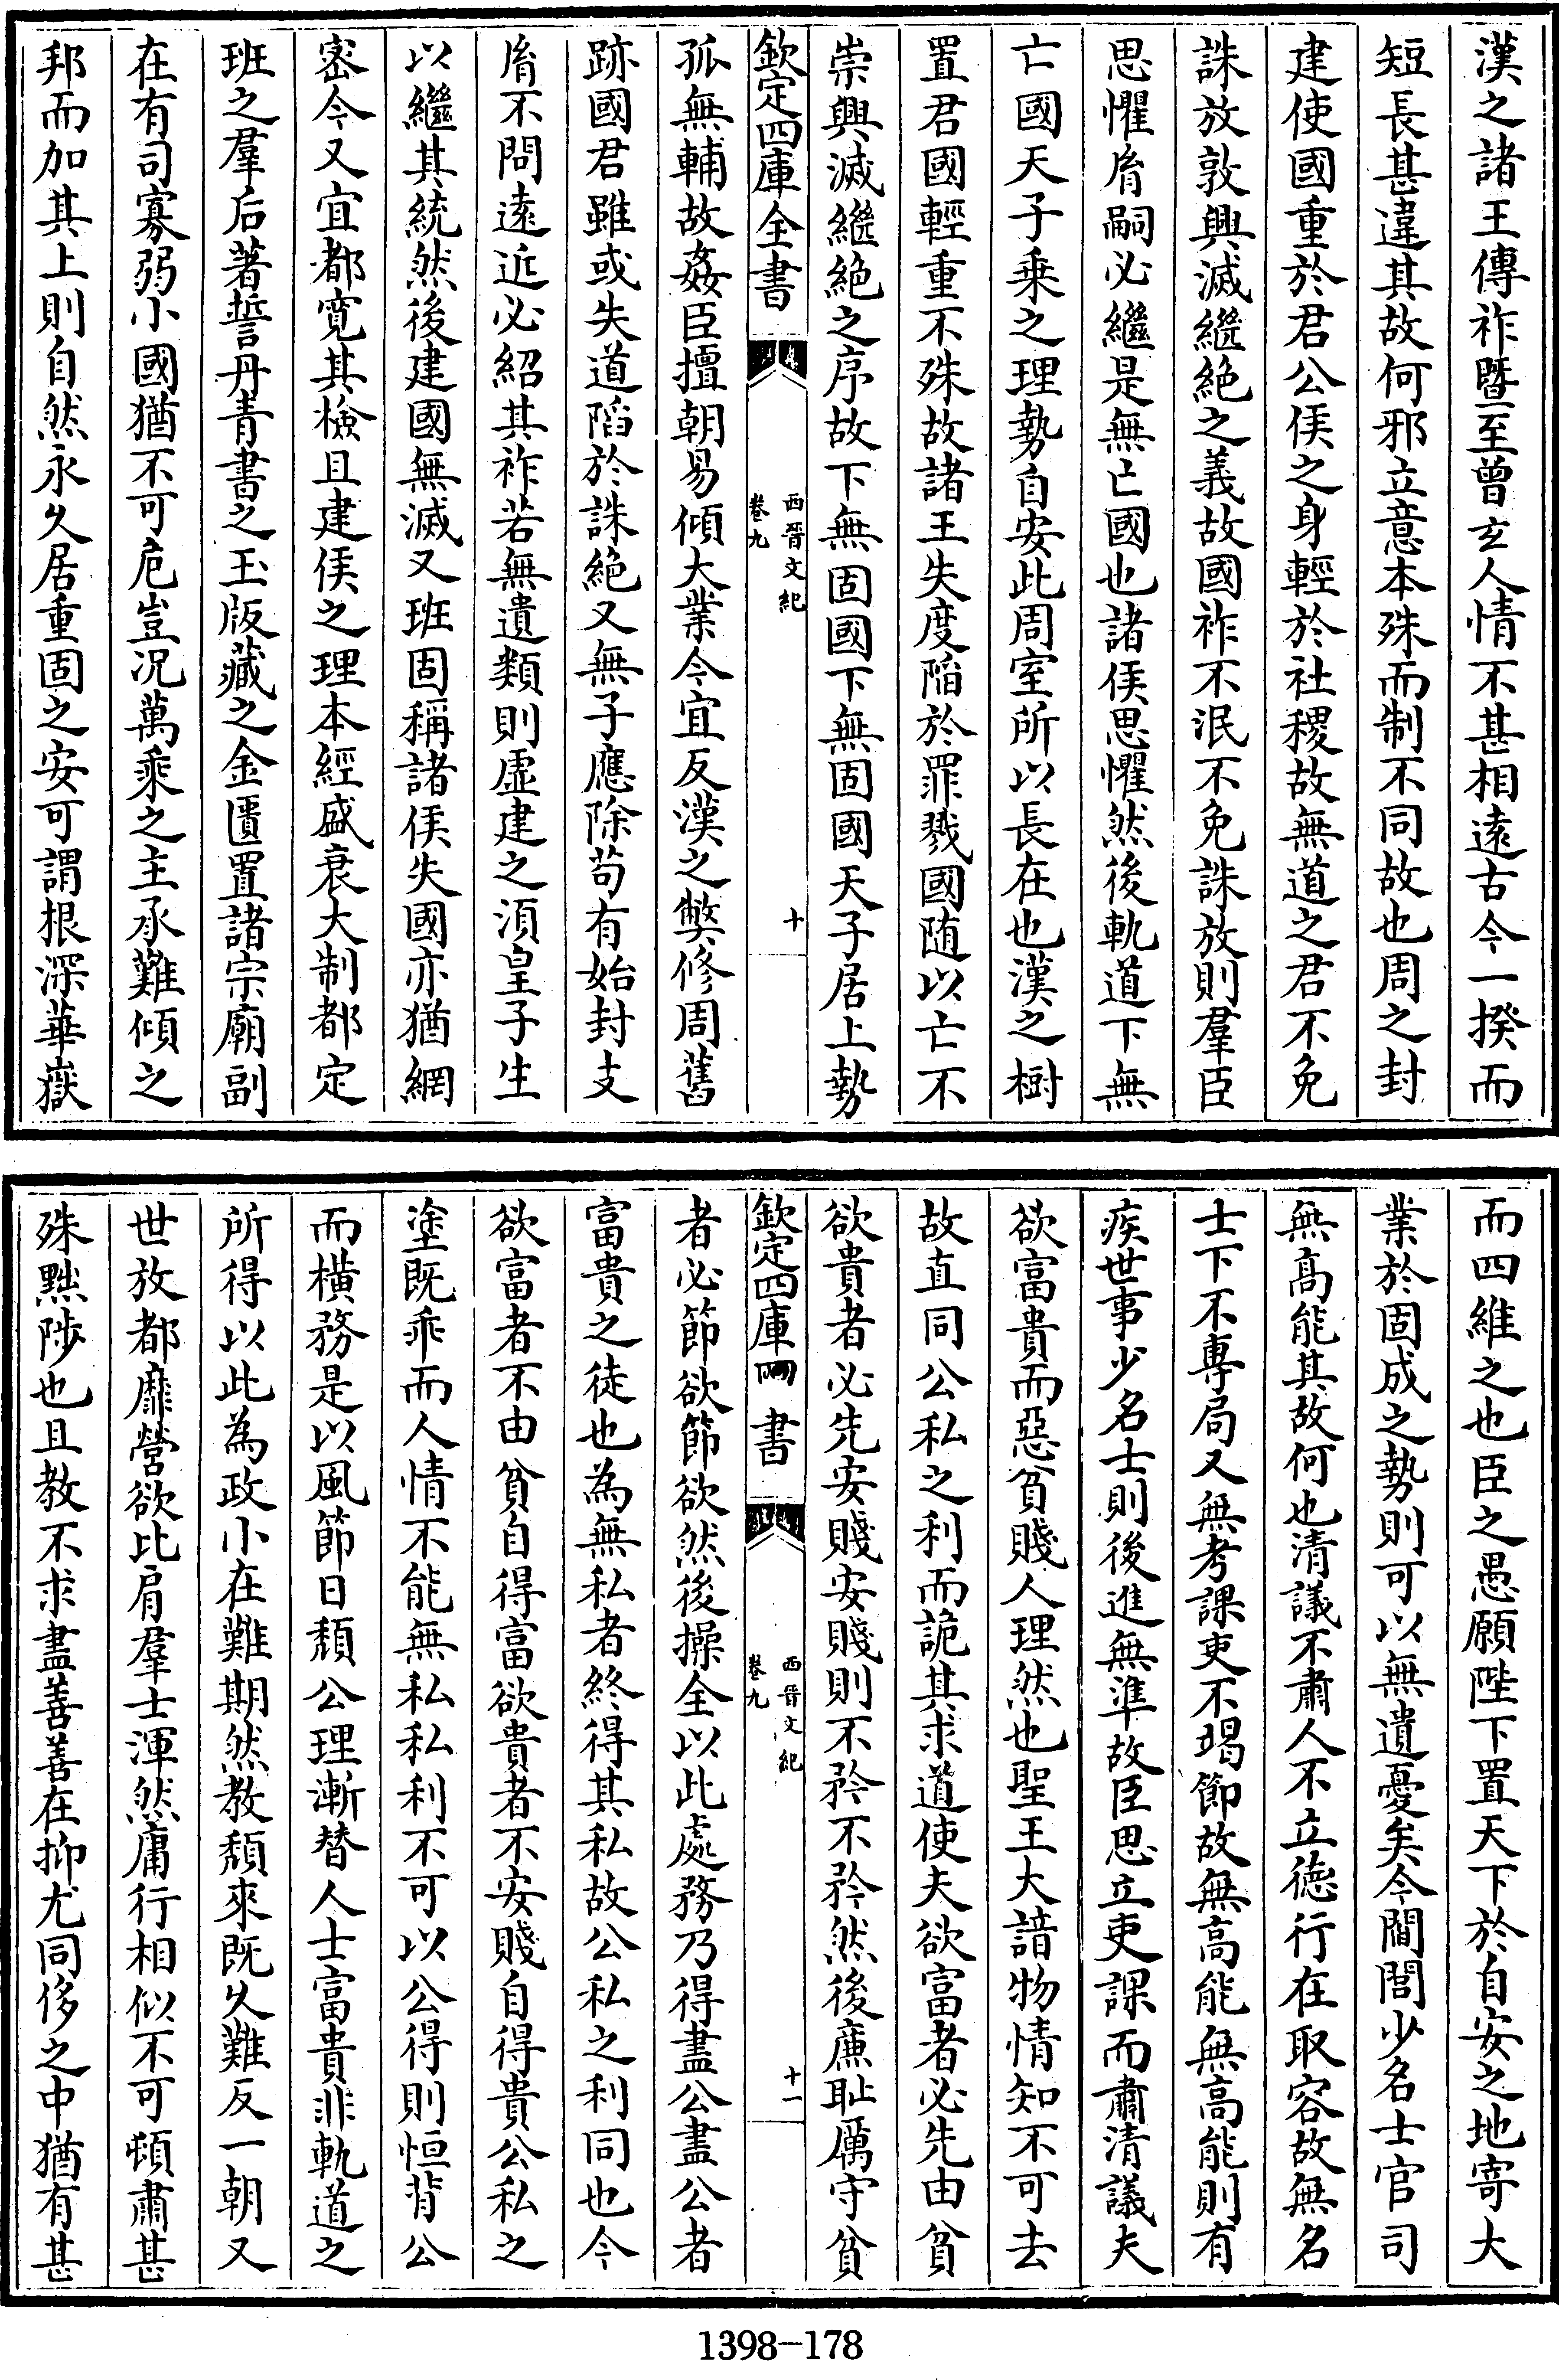 漢之諸王傳祚暨至曾玄人情不甚相遠古今一揆而
短長甚違其故何邪立意本殊而制不同故也周之封
建使國重於君公侯之身輕於社稷故無道之君不免
誅放敦興滅繼絶之義故國祚不泯不免誅放則羣臣
思懼胤嗣必繼是無亡國也諸侯思懼然後軌道下無
亡國天子乗之理勢自安此周室所以長在也漢之樹
置君國輕重不殊故諸王失度陷於罪戮國隨以亡不
崇興滅繼絶之序故下無固國下無固國天子居上勢
欽定四庫全書
西晉文紀
卷九
十
孤無輔故姦臣擅朝易傾大業今宜反漢之弊修周舊
跡國君雖或失道陷於誅絶又無子應除苟有始封支
胤不問遠近必紹其祚若無遺類則虚建之須皇子生
以繼其統然後建國無滅又班固稱諸侯失國亦猶網
密今又宜都寛其檢且建侯之理本經盛衰大制都定
班之羣后著誓丹青書之玉版藏之金匱置諸宗廟副
在有司寡弱小國猶不可危豈況萬乘之主承難傾之
邦而加其上則自然永久居重固之安可謂根深華嶽
而四維之也臣之愚願陛下置天下於自安之地寄大
業於固成之勢則可以無遺憂矣今閻閭少名士官司
無高能其故何也清議不肅人不立德行在取容故無名
士下不專局又無考課吏不竭節故無高能無高能則有
疾世事少名士則後進無準故臣思立吏課而肅清議夫
欲富貴而惡貧賤人理然也聖王大諳物情知不可去
故直同公私之利而詭其求道使夫欲富者必先由貧
欲貴者必先安賤安賤則不矜不矜然後亷恥厲守貧
欽定四庫全書
西晉文紀
卷九
十一
者必節欲節欲然後操全以此處務乃得盡公盡公者
富貴之徒也為無私者終得其私故公私之利同也今
欲富者不由貧自得富欲貴者不安賤自得貴公私之
塗既乖而人情不能無私私利不可以公得則恒背公
而橫務是以風節日頽公理漸替人士富貴非軌道之
所得以此為政小在難期然教頽來既久難反一朝又
世放都靡營欲比肩羣士渾然庸行相似不可頓肅甚
殊黜陟也且教不求盡善善在抑尤同侈之中猶有甚
1398-178